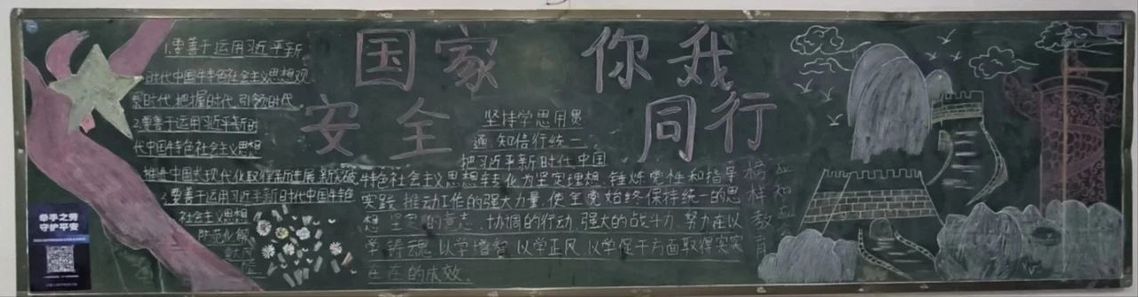 国家 你我
安全 同行
1.要善于运用习近平新
时代中国特色社会主义思想观
察时代、把握时代、引领时代
2.要善于运用习近平新时
代中国特色社会主义思想
推进中国式现代化取得新进展、新突破
3.要善于运用习近平新时代中国特色
社会主义思想
防范化解
坚持学思用贯
通、知信行统一
把习近平新时代中国
特色社会主义思想转化为坚定理想、锤炼党性和指导
实践、推动工作的强大力量,使全党始终保持统一的思
想、坚定的意志、协调的行动、强大的战斗力,努力在以
学铸魂、以学增智、以学正风、以学促干方面取得实实
在在的成效.
举手之劳
守护平安